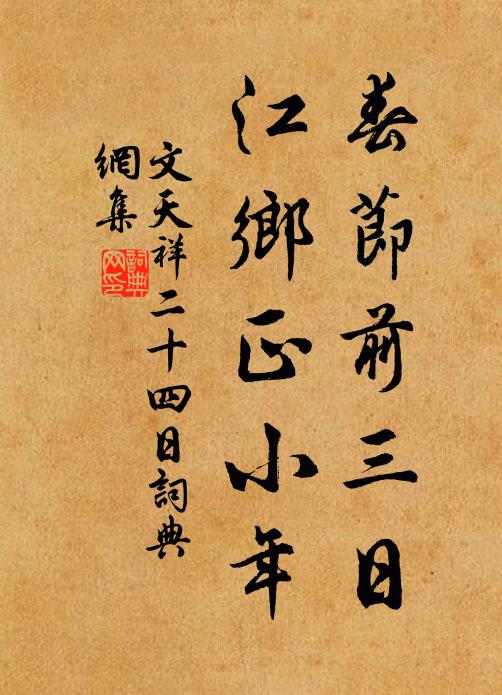 春節前三日
江鄉正小年
文天祥二十四日詞典
網集
詞典
网印